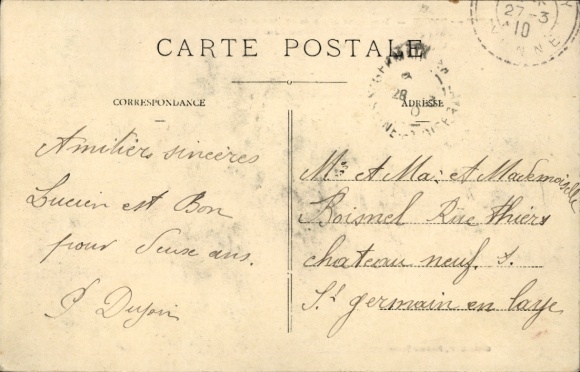 CARTE POSTALE
CORRESPONDANCE
ADRESSE
27-3
10
28
Amitiers sincères
Lucien est Bon
pour deux ans.
Mr et Ma: et Mademoiselle
Boismel Rue Thiers
chateau neuf. s.
St germain en laye